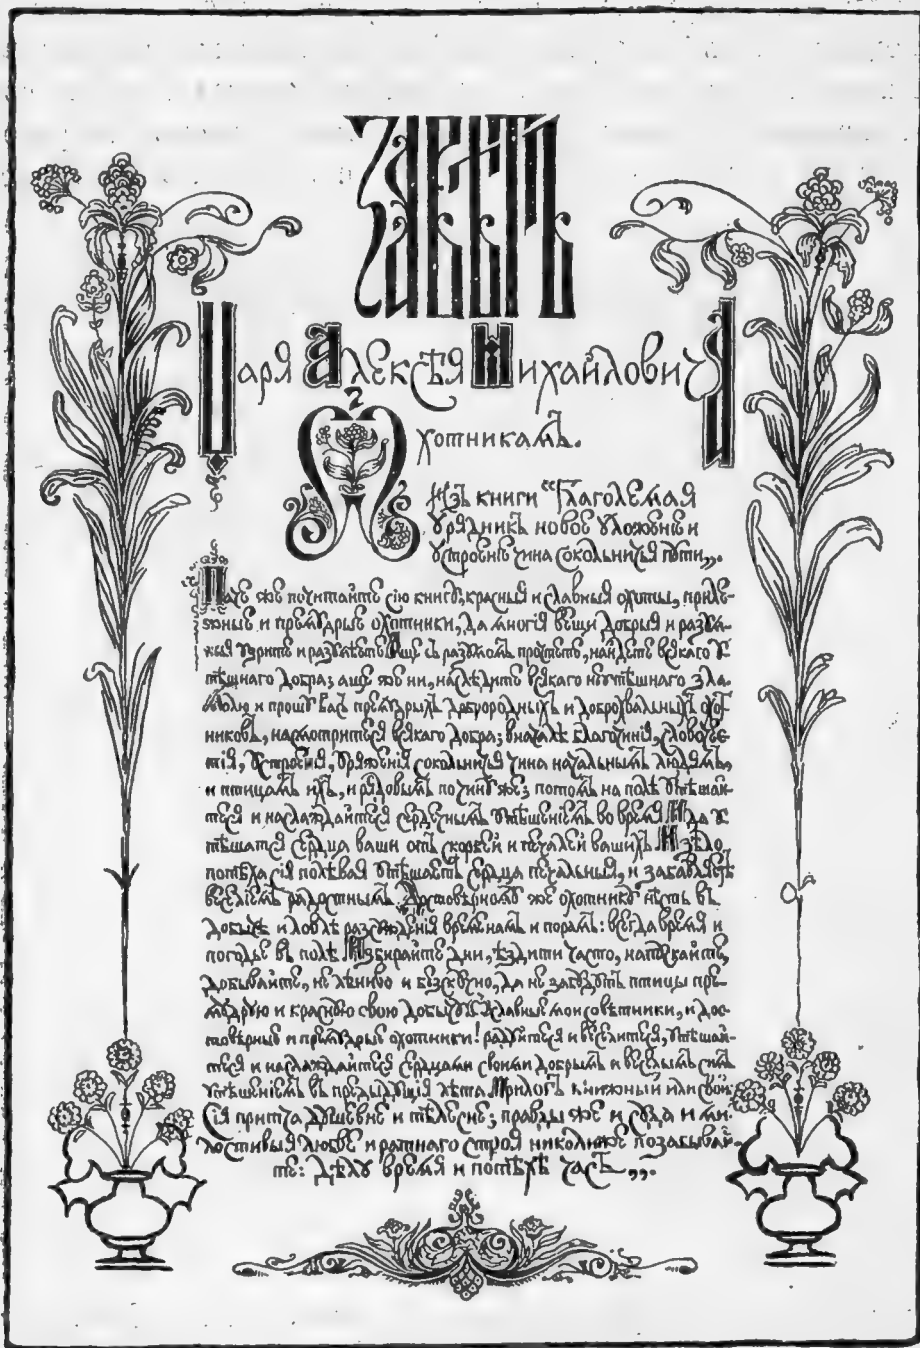 Завѣтъ
Царя Алексѣя Михайловича
Охотникамъ.
Изъ книги “Глаголемая
Урядникъ новое уложеніе и
устроеніе чина сокольничья пути„.
Паче же почитайте сію книгу, красныя и славныя охоты, приле-
жные и премудрые охотники, да многія вещи добрыя и разум-
ныя узрите и разумѣете Аще съ разумомъ прочтете, найдете всякаго у-
тѣшнаго добра; аще же ни, наслѣдите всякаго неутѣшнаго зла.
Молю и прошу васъ премудрыхъ доброродныхъ и доброхвальныхъ охот-
никовъ, насмотритеся всякаго добра; вначалѣ благочинія, славочес-
тія, устроенія, уряженія сокольничья чина начальнымъ людямъ,
и птицамъ ихъ, и рядовымъ по чину же; потомъ на полѣ утѣшай-
теся и наслаждайтеся сердечнымъ утѣшеніемъ во время И да у-
тѣшатся сердца ваши отъ скорбей и печалей вашихъ И зѣло
потѣха сія полѣвая утѣшаетъ сердца печальныя, и забавляетъ
веселіемъ радостнымъ. Достовѣрному же охотнику нѣсть въ
добычѣ и ловлѣ разсужденія временамъ и порамъ: всегда время и
погодье въ полѣ Избирайте дни, ѣздите часто, напускайте,
добывайте, не лѣниво и безскучно, да не забудутъ птицы пре-
мудрую и красную свою добычу О славные мои совѣтники, и дос-
товѣрные и премудрые охотники! радуйтеся и веселитеся, утѣшай-
теся и наслаждайтеся сердцами своими добрымъ и веселымъ симъ
утѣшеніемъ въ предыдущія лѣта. Прилогъ книжный или свой:
Сія притча душевне и тѣлесне; правды же и суда и ми-
лостивыя любве и ратнаго строя николиже позабывай-
те: дѣлу время и потѣхѣ часъ„.